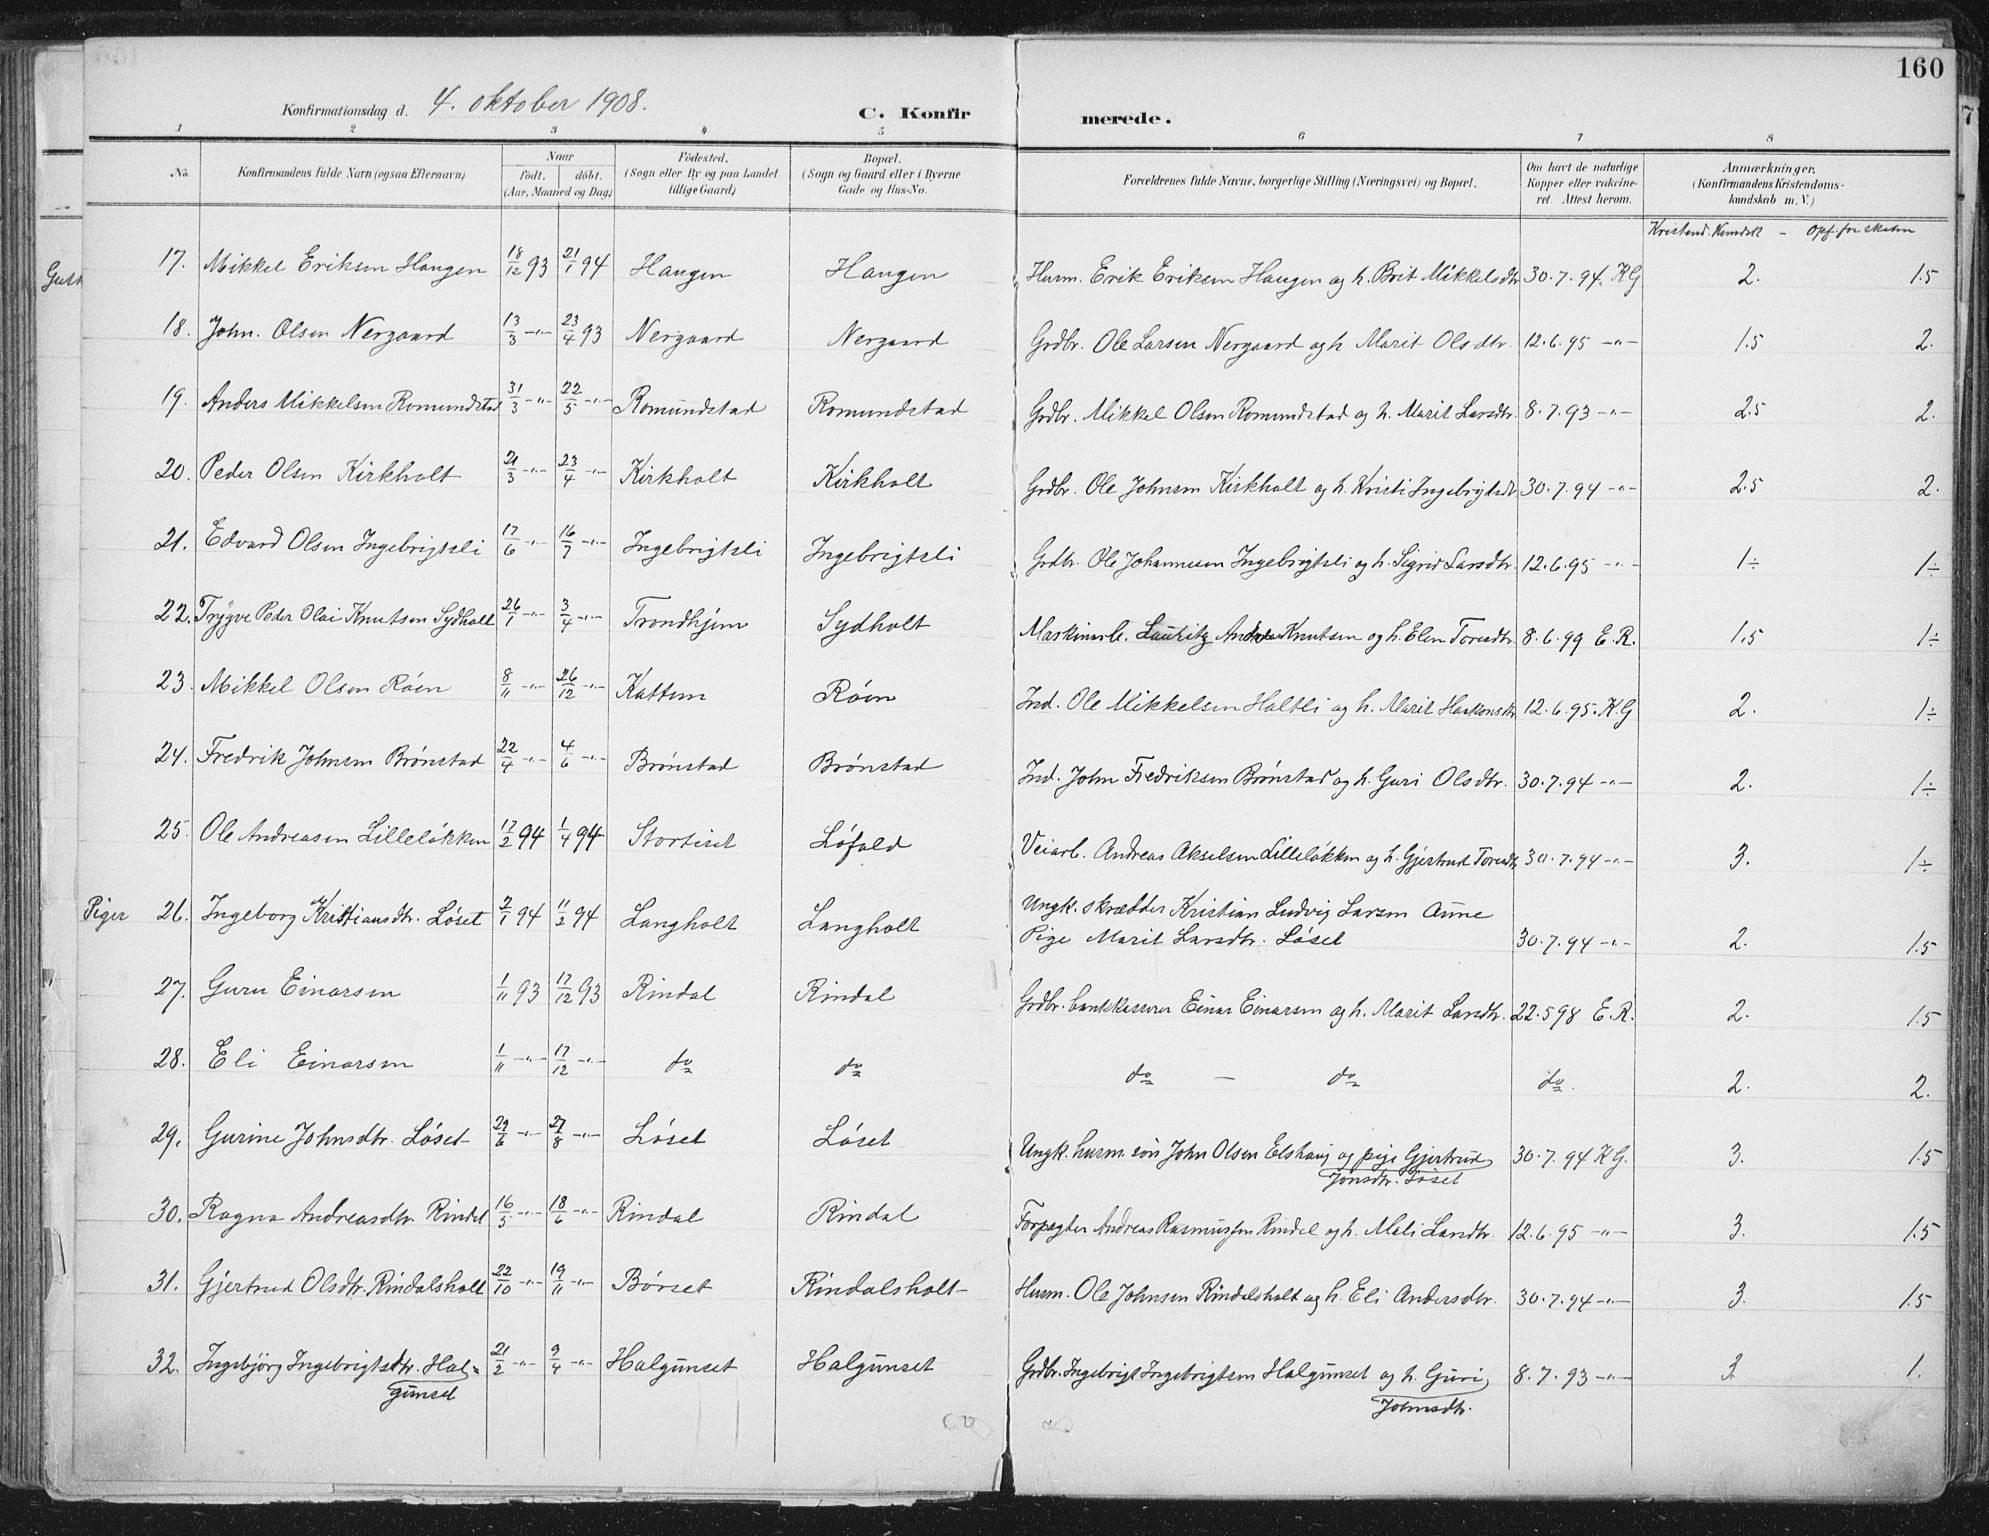 160
Konfirmationsdag d. 4. oktober 1908. C. Konfirmerede.
1 2 3 4 5 6 7 8
No. Konfirmandens fulde Navn (ogsaa Efternavn) Naar født. døbt. (Aar, Maaned og Dag) Fødested. (Sogn eller By og paa Landet tillige Gaard) Bopæl. (Sogn og Gaard eller i Byerne Gade og Hus-No. Forældrenes fulde Navne, borgerlige Stilling (Næringsvei) og Bopæl. Om havt de naturlige Kopper eller vakcineret. Attest herom. Anmærkninger. (Konfirmandens Kristendomskundskab m. V.)
Kristend. Kundsk - Opf. for skolen
17. Mikkel Eriksen Haugen 18/12 93 21/1 94 Haugen Haugen Husm. Erik Eriksen Haugen og h. Brit Mikkelsdtr 30.7.94. K G 2. 1.5
18. John. Olsen Nergaard 13/3 -"- 23/4 93 Nergaard Nergaard Grdbr. Ole Larsen Nergaard og h Marit Olsdtr. 12.6.95 -"- 1.5 2.
19. Anders Mikkelsen Romundstad 31/3 -"- 22/5 -"- Romundstad Romundstad Grdbr. Mikkel Olsen Romundstad og h. Marit Larsdtr. 8.7.93 -"- 2.5 2.
20. Peder Olsen Kirkholt 21/3 -"- 23/4 -"- Kirkholt Kirkholt Grdbr. Ole Johnsen Kirkholt og h. Kristi Ingebrigtsdt 30.7.94 -"- 2.5 2.
21. Edvard Olsen Ingebrigtsli 17/6 -"- 16/7 -"- Ingebrigtsli Ingebrigtsli Grdbr. Ole Johannesen Ingebrigtsli og h. Sigrid Larsdtr. 12.6.95 -"- 1÷ 1÷
22. Trygve Peder Olai Knutsen Sydholt 26/1 -"- 3/4 -"- Trondhjem Sydholt Maskinarb. Lauritz Andr Knutsen og h. Elen Toresdtr. 8.6.99 E. R. 1.5 1÷
23. Mikkel Olsen Röen 8/11 -"- 26/12 -"- Kattum Röen Ind. Ole Mikkelsen Holtli og h. Marit Haakonsdtr 12.6.95. K. G 2. 1÷
24. Fredrik Johnsen Brónstad 22/4 -"- 4/6 -"- Brónstad Brónstad Ind. John Fredriksen Brónstad og h. Guri Olsdtr. 30.7.94 -"- 2. 1÷
25. Ole Andreasen Lillelókken 17/2 94 1/4 94 Stortiset Lófald Veiarb. Andreas Akselsen Lillelókken og h. Gjertrud Toresdtr 30.7.94 -"- 3. 1÷
Piger 26. Ingeborg Kristiansdtr. Lóset 2/1 94 11/2 94 Langholt Langholt Ungk. skrædder Kristian Ludvig Larsen Aune
Pige Marit Larsdtr. Lóset 30.7.94 -"- 2. 1.5
27. Guru Einarsen 1/11 93 17/12 93 Rindal Rindal Grdbr. bankkasserer Einar Einarsen og h. Marit Larsdtr. 22.5 98 E. R. 2. 1.5
28. Eli Einarsen 1/11 -"- 17/12 -"- do do do - do do. 2. 2.
29. Gurine Johnsdtr. Lóset 29/6 -"- 27/8 -"- Lóset Lóset Ungk. husm. sön John Olsen Elshaug og pige Gjertrud 30.7.94 K G. 3. 1.5
Jonsdtr. Lóset
30. Ragna Andreasdtr. Rindal 16/5 -"- 18/6 -"- Rindal Rindal Forpagter Andreas Rasmussen Rindal og h. Mali Larsdtr. 12.6.95 -"- 3. 1.5
31. Gjertrud Olsdtr. Rindalsholt 22/10 -"- 19/11 -"- Bórset Rindalsholt Husm. Ole Johnsen Rindalsholt og h. Eli Andersdtr. 30.7.94 -"- 3. 1.5
32. Ingebjörg Ingebrigtsdtr. Hal- 21/2 -"- 9/4 -"- Halgunset Halgunset Grdbr. Ingebrigt Ingebrigtsen Halgunset og h. Guri 8.7.93 -"- 3. 1.
gunset Johnsdtr.